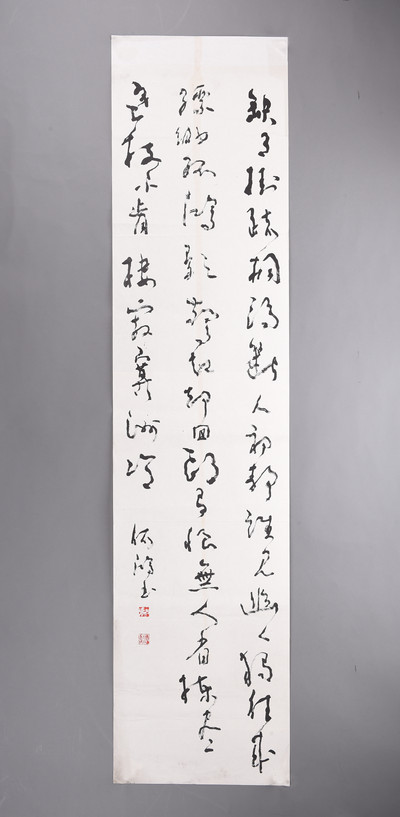 缺月掛疏桐漏斷人初靜誰見幽人獨往來
縹緲孤鴻影驚起却回頭有恨無人省揀盡
寒枝不肯棲寂寞洲冷
书